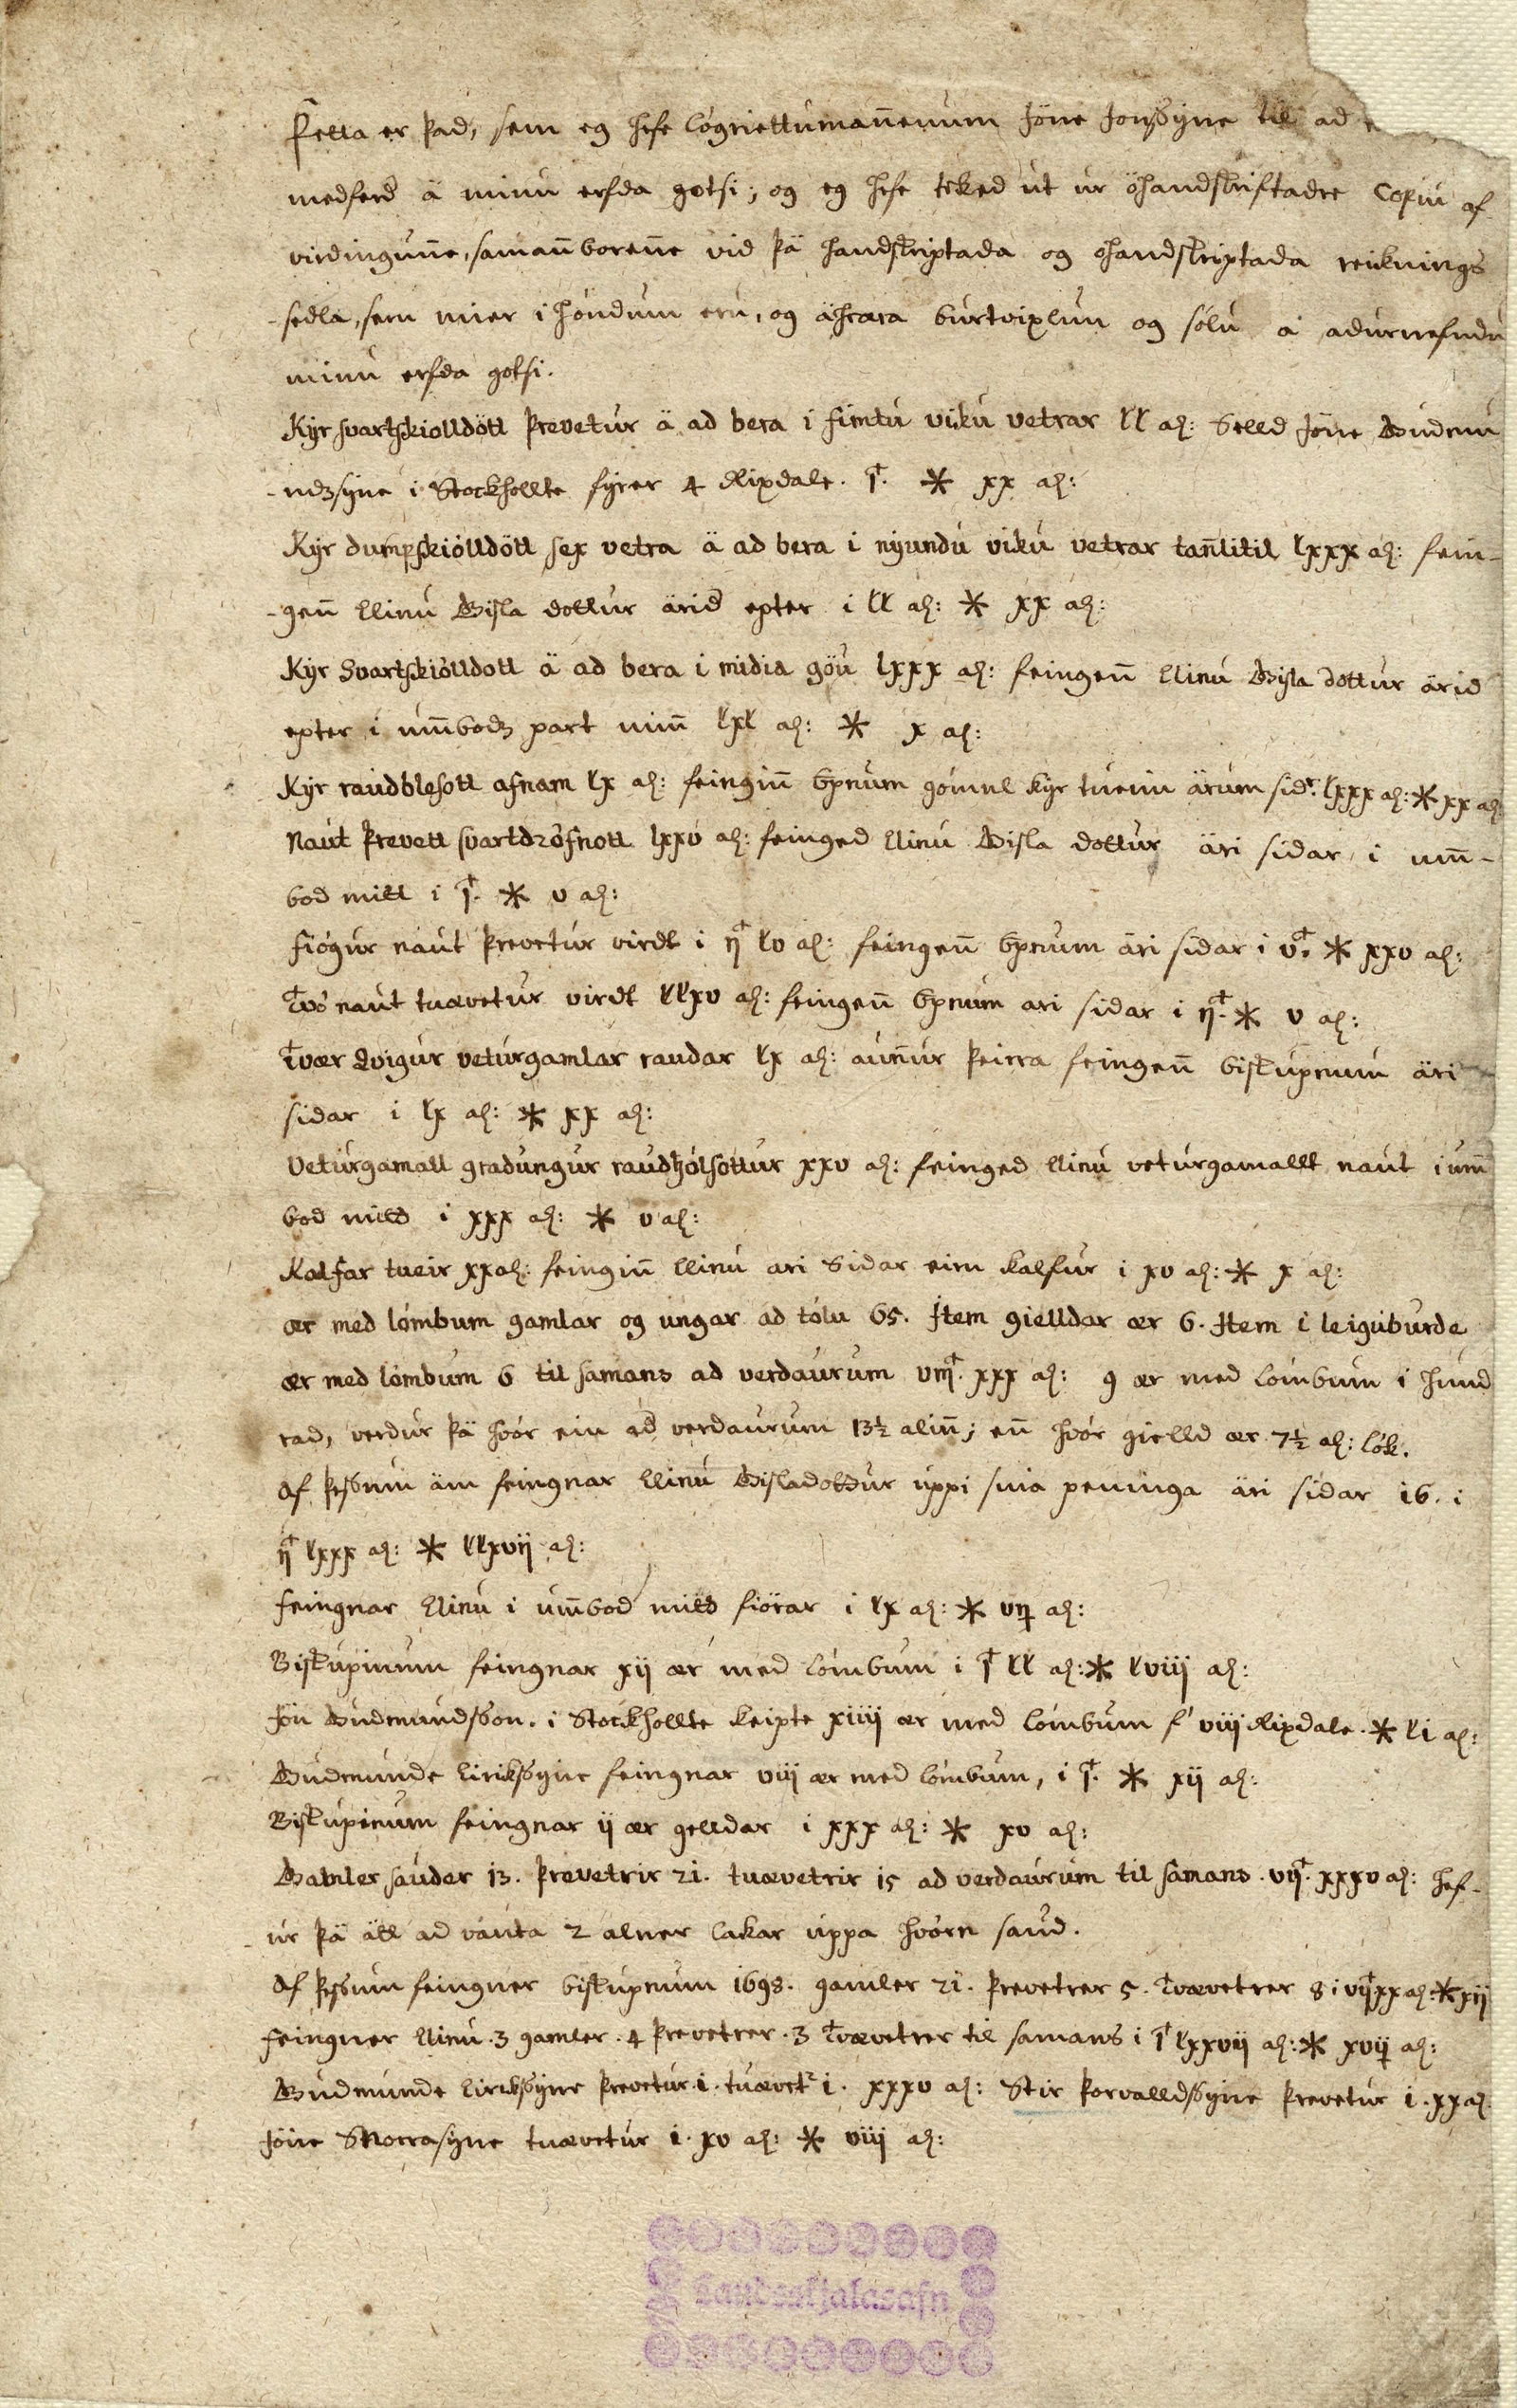 Þetta er það, sem eg hefe lógriettumañenum Jöne Jonßyne til ad
medferd ä minu erfda gotsi; og eg hefe teked ut ur öhandskriftadre Copiu af
virdinguñe, samañboreñe vid þä handskriptada og öhandskriptada reiknings
-sedla, sem mier i hóndum eru, og ähræra burtvixlun og sólu á adurnefndu
minu erfda gotsi.
Kyr svartskiolldött þrevetur ä ad bera i fimtu viku vetrar ll al: Selld Jöne Gudmu
-ndzsyne i Stockhollte fyrer 4 Rixdale. j. * xx al:
Kyr dumpskiólldött sex vetra ä ad bera i nyundu viku vetrar tañlitil lxxx al: fein-
-geñ Elinu Gisla dottur ärid epter i ll al: * xx al:
Kyr Svartskiólldott ä ad bera i midia göu lxxx al: feingeñ Elinu Gisla dottur ärid
epter i um̄bodz part miñ lxl al: * x al:
Kyr raudblesott afnam lx al: feingiñ bpnum gómul kyr tueim ärum sidr. lxxx al: * xx al:
Naut þrevett svartdröfnott lxxv al: feinged Elinu Gisla dottur äri sidar i um̄-
bod mitt i j. * v al:
fiögur naut þrevetur virdt i ij lv al: feingeñ bpnum äri sidar i v. * xxv al:
Tvó naut tuævetur virdt llxv al: feingeñ bpnum ari sidar i ij. * v al:
Tvær qvigur veturgamlar raudar lx al: aũnur þeirra feingeñ biskupnum äri
sidar i lx al: * xx al:
Veturgamall gradungur raudhiólsottur xxv al: feinged Elinu veturgamallt naut i um̄
bod mitt i xxx al: * v al:
Kalfar tueir xx al: feingiñ Elinu ari Sidar eirn kalfur i xv al: * x al:
ær med lómbum gamlar og ungar ad tólu 65. Item gielldar ær 6. Item i leiguburde
ær med lómbum 6 til samans ad verdaurum viij. xxx al: 9 ær med lómbum i hund
rad, verdur þä hvór ein ad verdaurum 13½ aliñ; eñ hvór gielld ær 7½ al: lók.
Af þeßum äm feingnar Elinu Gisladottur uppi sina peninga äri sidar 16. i
ij lxxx al: * llxvij al:
feingnar Elinu i um̄bod mitt fiörar i lx al: * vij al:
Biskupinum feingnar xij ær med lómbum i j ll al: * lviij al:
Jön Gudmundsson. i Stockhollte keipte xiiij ær med lómbum f' viij Rixdale. * li al:
Gudmunde Eirikßyne feingnar viij ær med lómbum, i j. * xij al:
Biskupinum feingnar ij ær gelldar i xxx al: * xv al:
Gamler sauder 13. þrevetrir 21. tuævetrir 15 ad verdaurum til samans. vij. xxxv al: hef-
-ur þä ätt ad vanta 2 alner lakar uppa hvórn saud.
Af þeßum feingner biskupnum 1698. gamler 21. þrevetrer 5. Tvævetrer 8 i vij xx al: * xij
feingner Elinu. 3 gamler. 4 þrevetrer. 3 Tvævetrer til samans i j lxxvij al: * xvij al:
Gudmunde Eirikßyne þrevetur. i. tuævetr i. xxxv al: Stir þorvalldßyne þrevetur i. xx al.
Jöne Snorrasyne tuævetur i. xv al: * viij al:
Landsskjalasafn